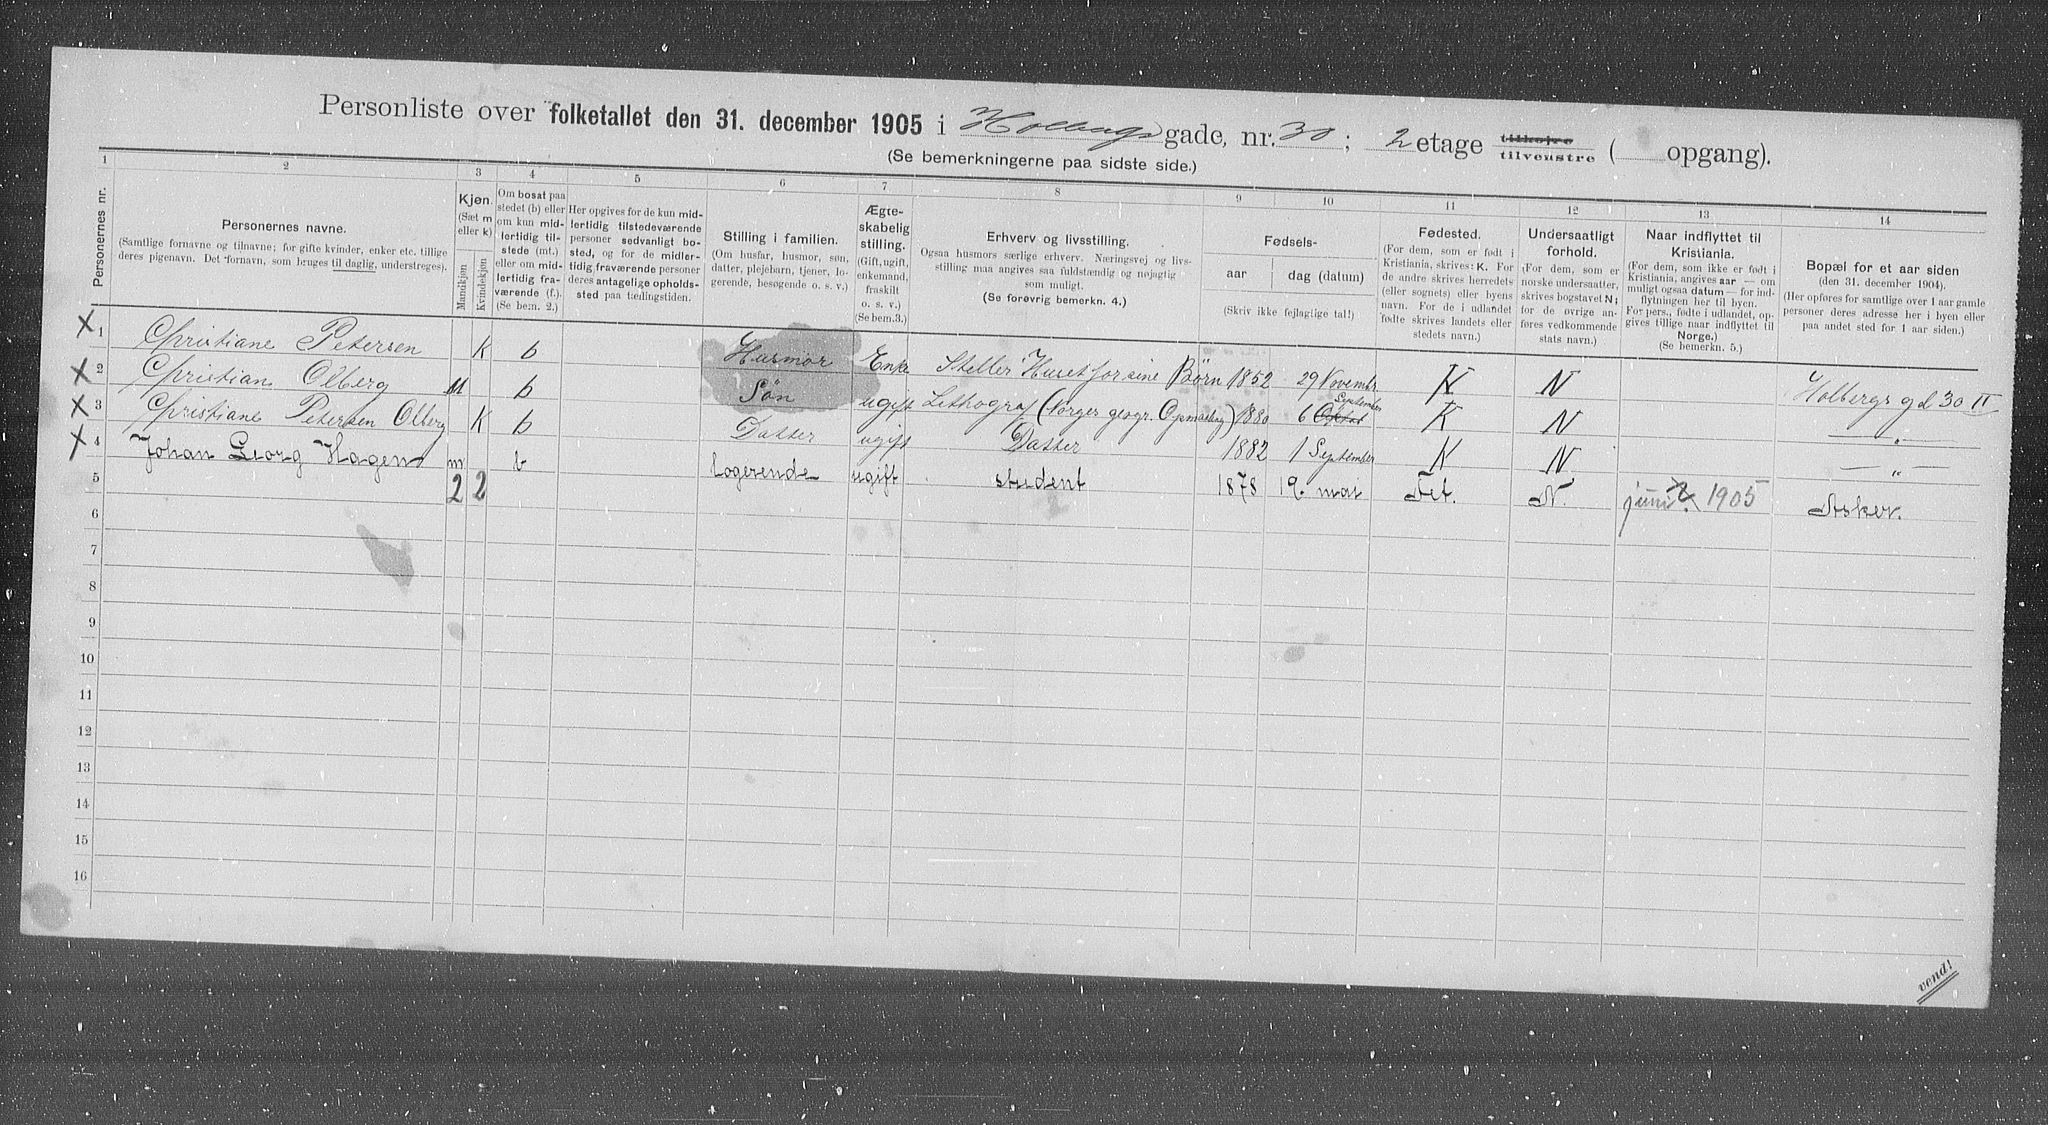 Personliste over folketallet den 31. december 1905 i Holbergs gade, nr. 30; 2 etage tilhøjre tilvenstre ( opgang).
(Se bemerkningerne paa sidste side.)
1 2 3 4 5 6 7 8 9 10 11 12 13 14
Personernes nr.
Personernes navne.
(Samtlige fornavne og tilnavne; for gifte kvinder, enker etc. tillige
deres pigenavn. Det fornavn, som bruges til daglig, understreges).
Kjøn.
(Sæt m
eller k)
Mandkjøn
Kvindekjøn
Om bosat paa
stedet (b) eller
om kun mid-
lertidig til-
stede (mt.)
eller om mid-
lertidig fra-
værende (f.).
(Se bem. 2.)
Her opgives for de kun mid-
lertidig tilstedeværende
personer sedvanligt bo-
sted, og for de midler-
tidig fraværende personer
deres antagelige opholds-
sted paa tællingstiden.
Stilling i familien.
(Om husfar, husmor, søn,
datter, plejebarn, tjener, lo-
gerende, besøgende o. s. v.)
Ægte-
skabelig
stilling.
(Gift, ugift,
enkemand,
fraskilt
o. s. v.)
(Se bem.3.)
Erhverv og livsstilling.
Ogsaa husmors særlige erhverv. Næringsvej og livs-
stilling maa angives saa fuldstændig og nøjagtig
som muligt.
(Se forøvrig bemerkn. 4.)
Fødsels-
aar dag (datum)
(Skriv ikke fejlagtige tal!)
Fødested.
(For dem, som er født i
Kristiania, skrives: K. For
de andre skrives herredets
(eller sognets) eller byens
navn. For de i udlandet
fødte skrives landets eller
stedets navn.)
Undersaatligt
forhold.
(For dem, som er
norske undersaatter,
skrives bogstavet N;
for de øvrige an-
føres vedkommende
stats navn.)
Naar indflyttet til
Kristiania.
(For dem, som ikke er født i
Kristiania, angives aar — om
muligt ogsaa datum — for ind-
flytningen her til byen.
For pers., fødte i udlandet, op-
gives tillige naar indflyttet til
Norge.)
(Se bemerkn. 5.)
Bopæl for et aar siden
(den 31. december 1904).
(Her opføres for samtlige over 1 aar gamle
personer deres adresse her i byen eller
paa andet sted for 1 aar siden.)
X 1 Christiane Petersen K b Husmor Enke Steller Huset for sine Børn 1852 29 Novembr K N Holbergs gd 30 II
X 2 Christian Olberg M b Søn ugift Lithograf (Norges geogr. Opmaaling) 1880 6 Oktob September K N — „ —
X 3 Christiane Petersen Olberg K b Datter ugift Datter 1882 1 September K N — „ —
X 4 Johan Georg Hagen m b logerende ugift student 1878 19. mai Fet. N. juni 1905 Asker.
5 2 2
6
7
8
9
10
11
12
13
14
15
16
vend!